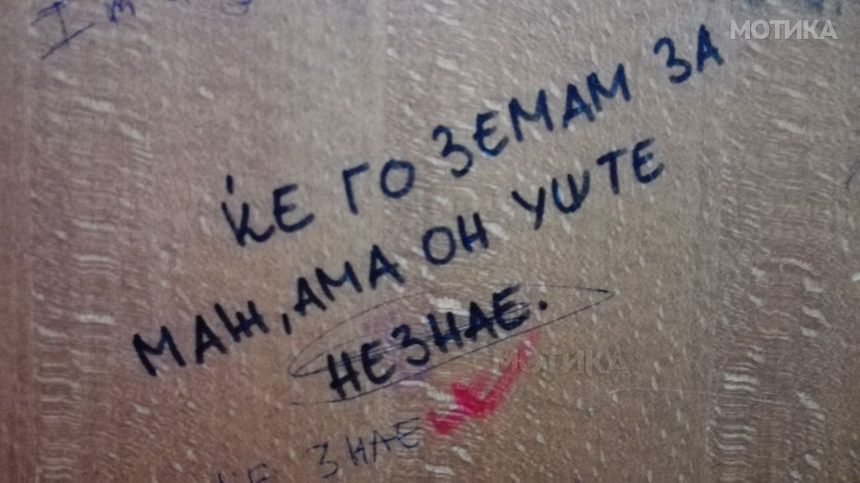 МОТИКА
ЌЕ ГО ЗЕМАМ ЗА
МАЖ, АМА ОН УШТЕ
НЕЗНАЕ.
МОТИКА
НЕ ЗНАЕ